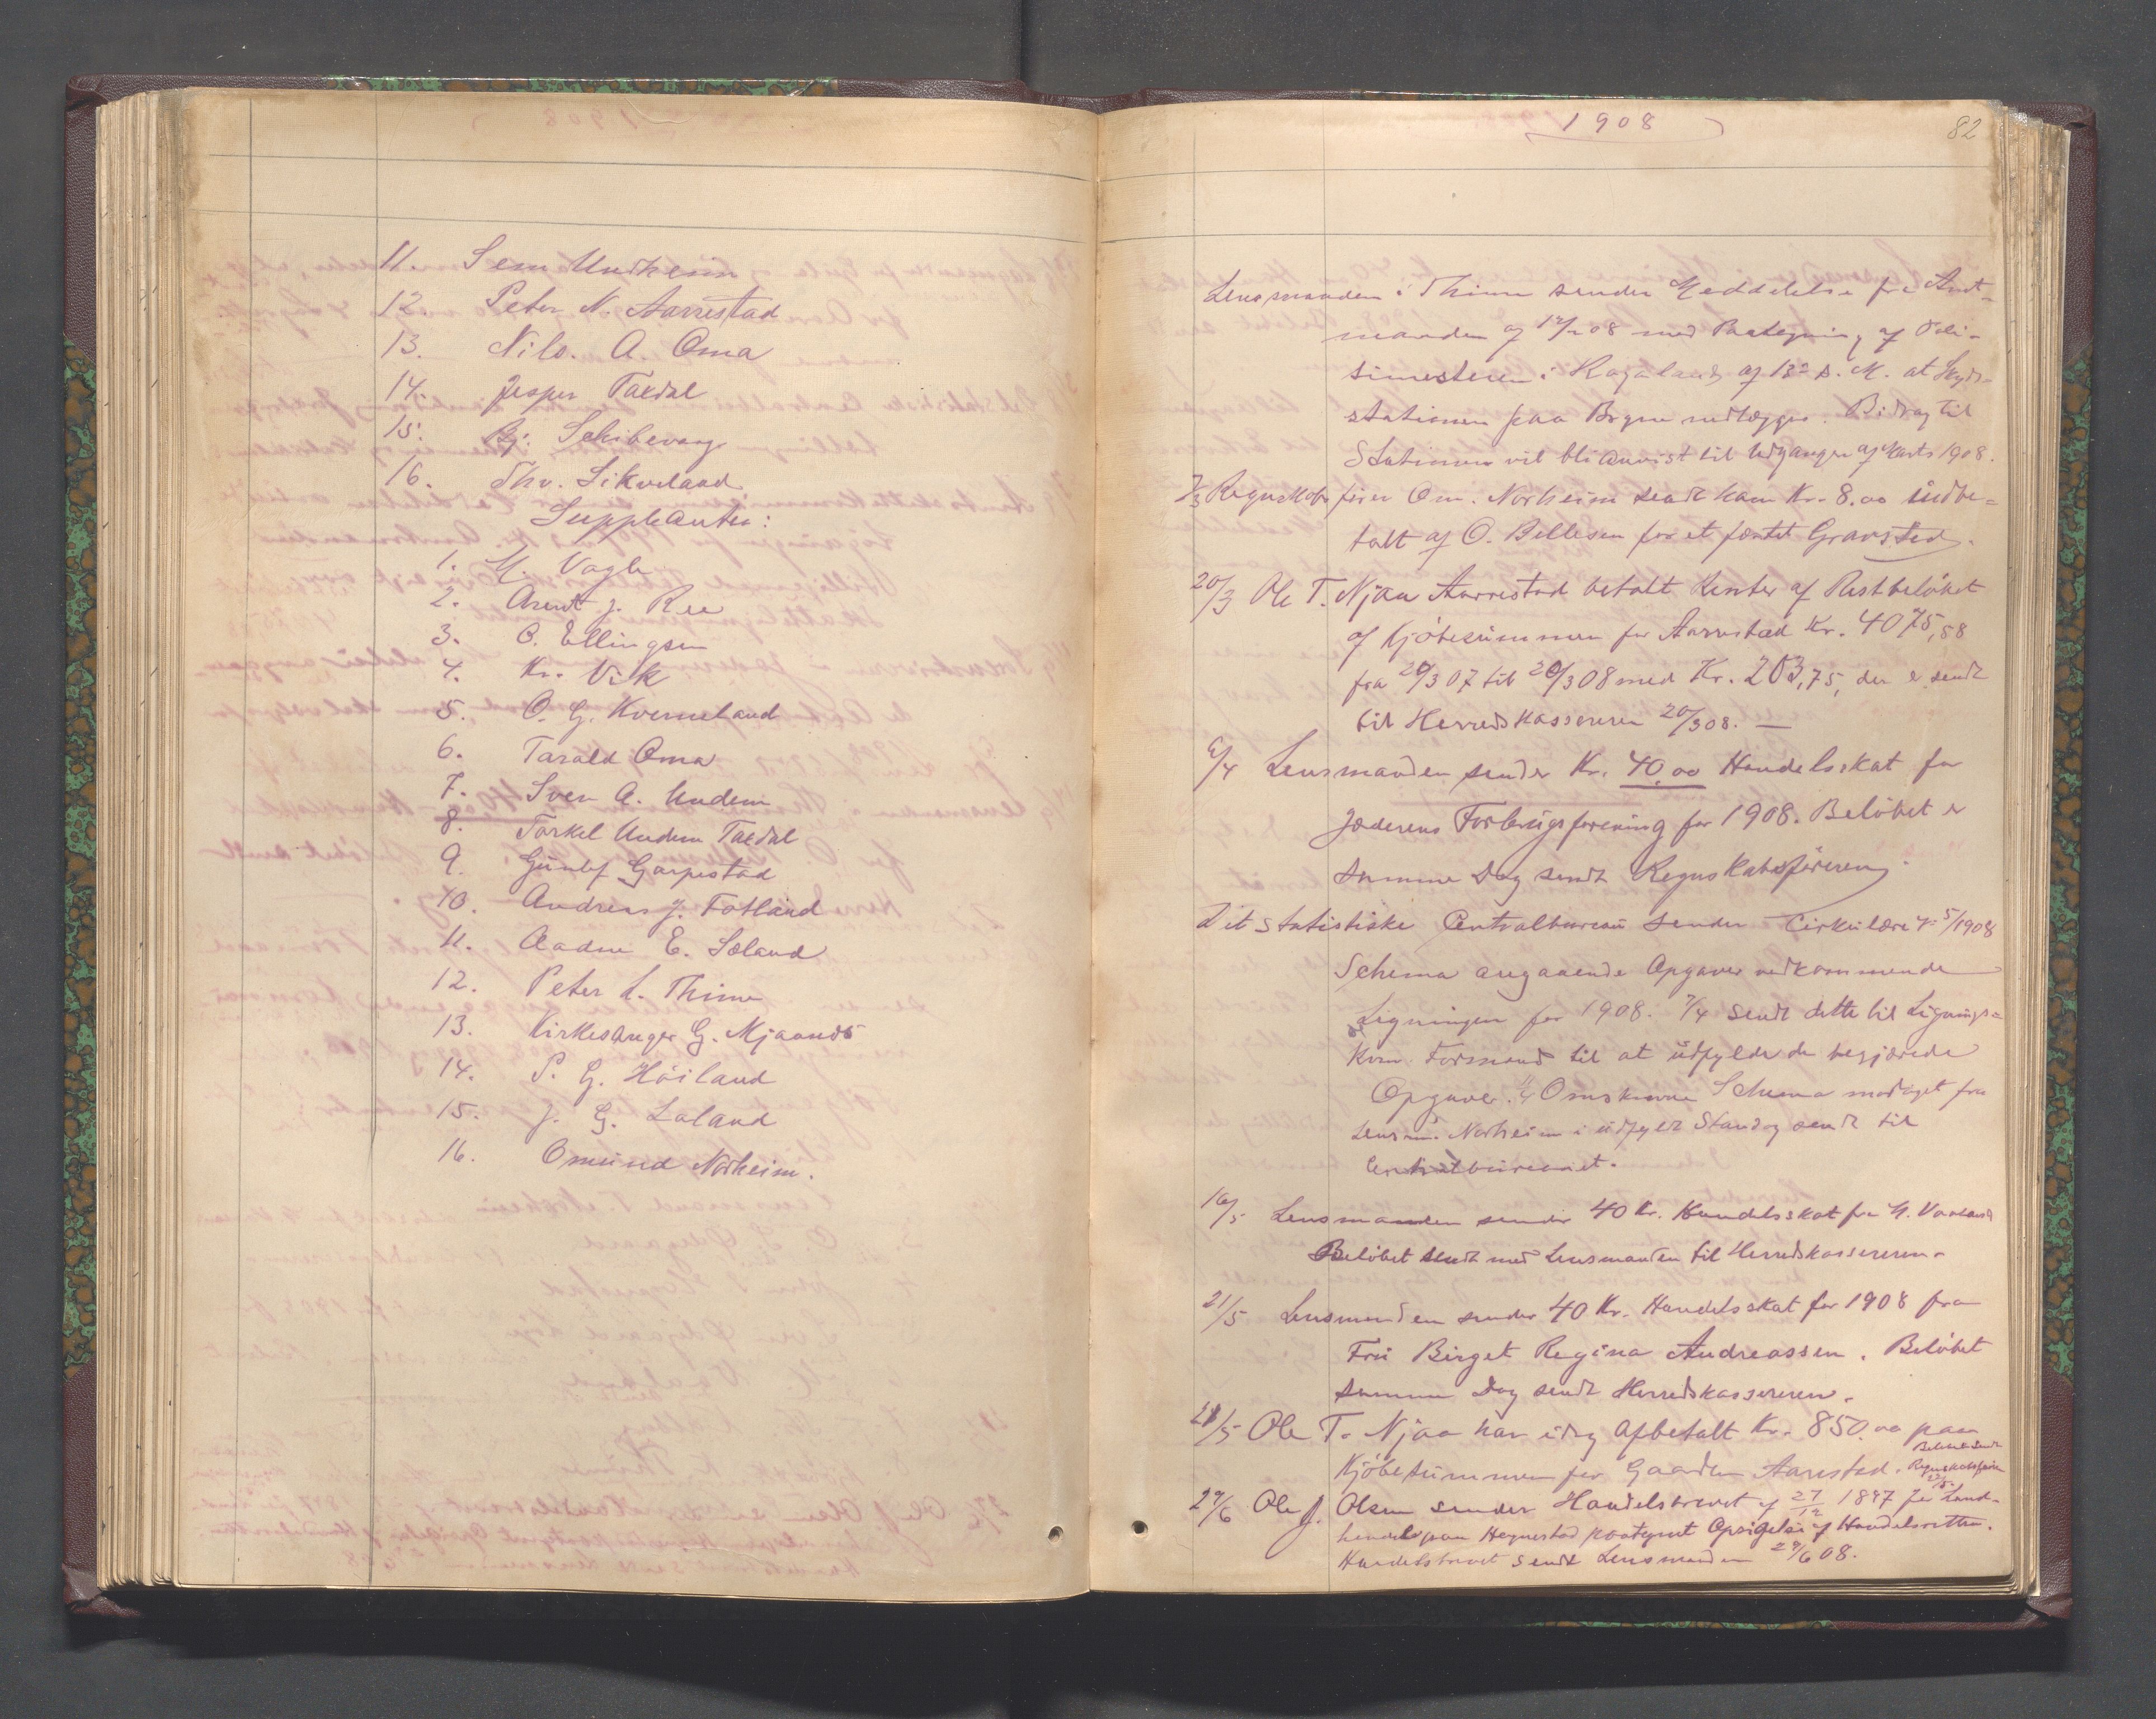 11. Sem Undheim
12. Peter N. Aarrestad
13. Nils. A. Oma
14. Jesper Taxdal
15. Bj. Schibevaag
16. Thv. Sikveland
Suppleanter:
1. M. Vagle
2. Arent J. Ree
3. O. Ellingsen
4. Kr. Vik
5. O. G. Kverneland
6. Tarald Oma
7. Sven A. Undem
8. Torkel Undem Taxdal
9. Gunlef Garpestad
10. Andreas J. Fotland
11. Aadne E. Sæland
12. Peter L. Thime
13. Kirkesanger G. Mjaanes
14. S. G. Höiland
15. J. G. Laland
16. Omund Norheim.
1908
82
Lensmanden i Thime sender Meddelelse fra Amt-
manden af 12/2 08 med Paategning af Poli-
timesteren i Rogaland af 13de d. M. at Skyds-
stationen paa Bryne nedlægges. Bidrag til
Stationen vil bli anvist til Udgangen af Marts 1908.
7/3 Regnskabsfører Om. Norheim sendt ham Kr. 8.00 indbe-
talt af O. Bellesen for et fæstet Gravsted.
20/3 Ole T. Njaa Aarrestad betalt Renter af Restbeløbet
af Kjöbesummen for Aarrestad Kr. 4075,58
fra 20/3 07 til 20/3 08 med Kr. 203,75, der er sendt
til Herredskassereren 20/3 08. —
6/4 Lensmanden sender Kr. 40,00 Handelsskat for
Jæderens Forbrugsforening for 1908. Beløbet er
samme Dag sendt Regnskabsføreren.
Det statistiske Centralbureau sender Cirkulære No 5/1908
Schema angaaende Opgaver vedkommende
Ligningen for 1908. 7/4 sendt dette til Lignings-
kom. Formand til at udfylde de begjærede
Opgaver. Omskrevne Schema modtaget fra
Lensm. Norheim i udfyldt Stand og sendt til
Centralbureauet.
16/5 Lensmanden sender 40 Kr. Handelsskat fra M. Vaaland
Beløbet sendt med Lensmanden til Herredskassereren.
21/5 Lensmanden sender 40 Kr. Handelsskat for 1908 fra
Fru Birget Regina Andreassen. Beløbet
samme Dag sendt Herredskassereren.
21/5 Ole T. Njaa har idag afbetalt Kr. 850.00 paa
Beløbet sendt
Kjöbesummen for Gaarden Aarestad. Regnskabsfører
29/6 Ole J. Olsen sender Handelsbrevet af 27/12 1897 for Land-
handel paa Hognestad paategnet Opsigelse af Handelsretten.
Handelsbrevet sendt Lensmanden 29/6 08.